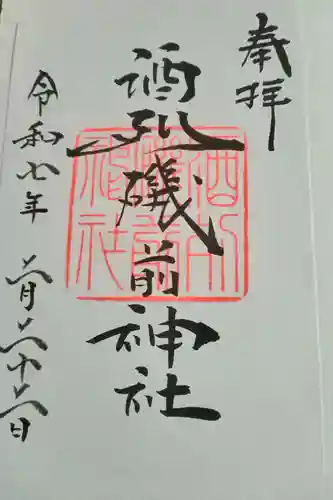 奉拝
酒列磯前神社
酒列
磯前
神社
令和七年 二月二十二日